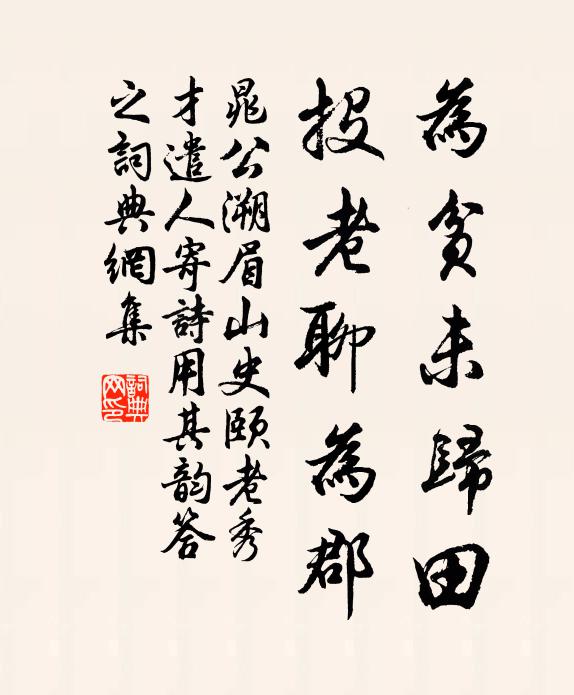 為貧未歸田
投老聊為郡
晁公溯眉山史頤老秀
才遣人寄詩用其韵答
之詞典網集
詞典網印